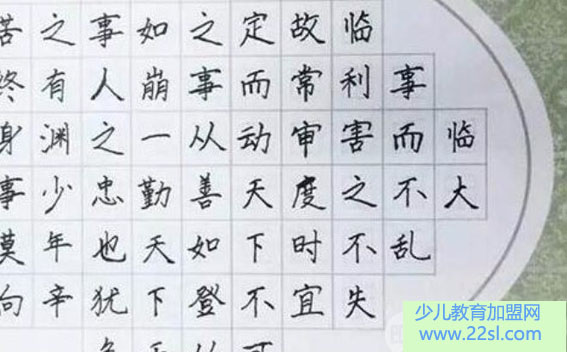 临大
事而不乱
临利害之不失
故常审度时宜
定而动天下不可
之事从善如登从
如崩一勤天下无
事人之忠也犹鱼
之有渊少年辛
苦终身事莫向
少儿教育加盟网
www.22sl.com